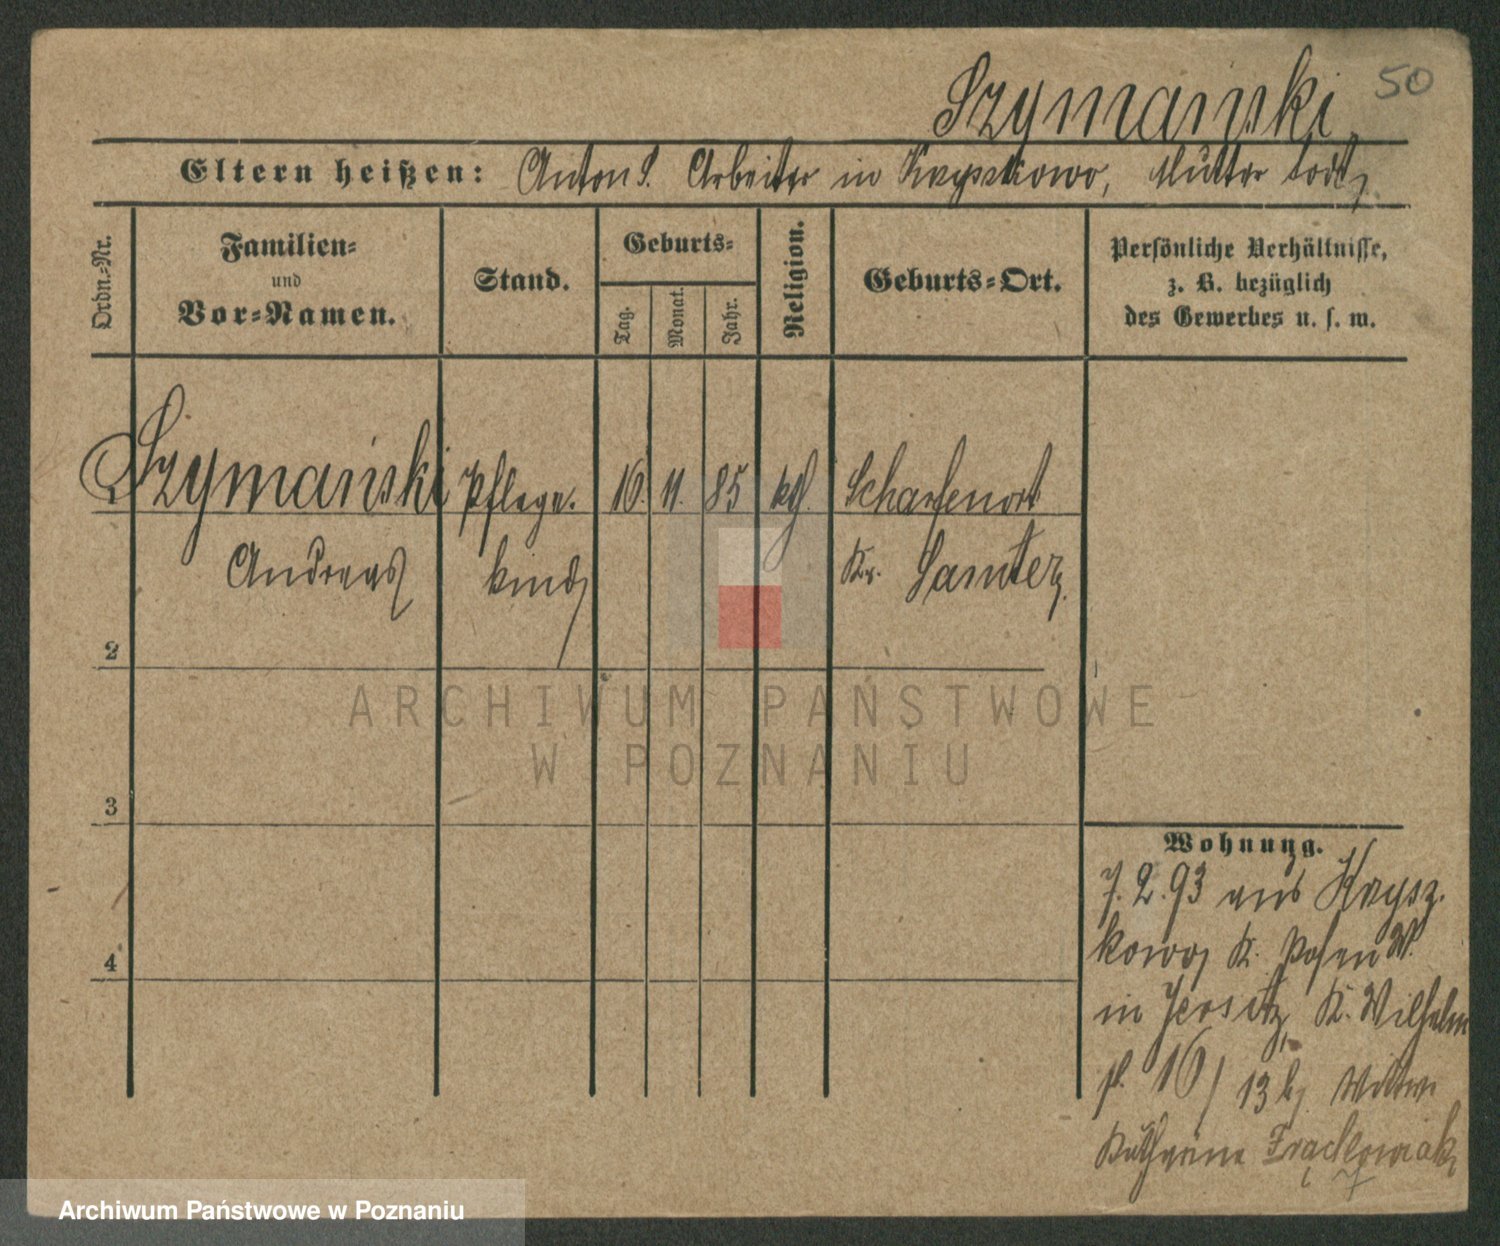 50
Szymański
Eltern heißen: Anton S. Arbeiter in Krzyszkowo, Mutter todt,
Ordn.-Nr.
Familien-
und
Vor-Namen.
Stand.
Geburts-
Tag.
Monat.
Jahr.
Religion.
Geburts-Ort.
Persönliche Verhältnisse,
z. B. bezüglich
des Gewerbes u. s. w.
Szymański Pflege- 16. 11. 85 kth. Scharfenort
Andreas kind, Kr. Samter,
2
ARCHIWUM PAŃSTWOWE
W POZNANIU
3
Wohnung.
7.2.93 aus Krzysz-
kowo, K. Posen W.
4
in Jersitz, K. Wilhelm
pl. 16/13 b, Wittwe
Katharina
Archiwum Państwowe w Poznaniu